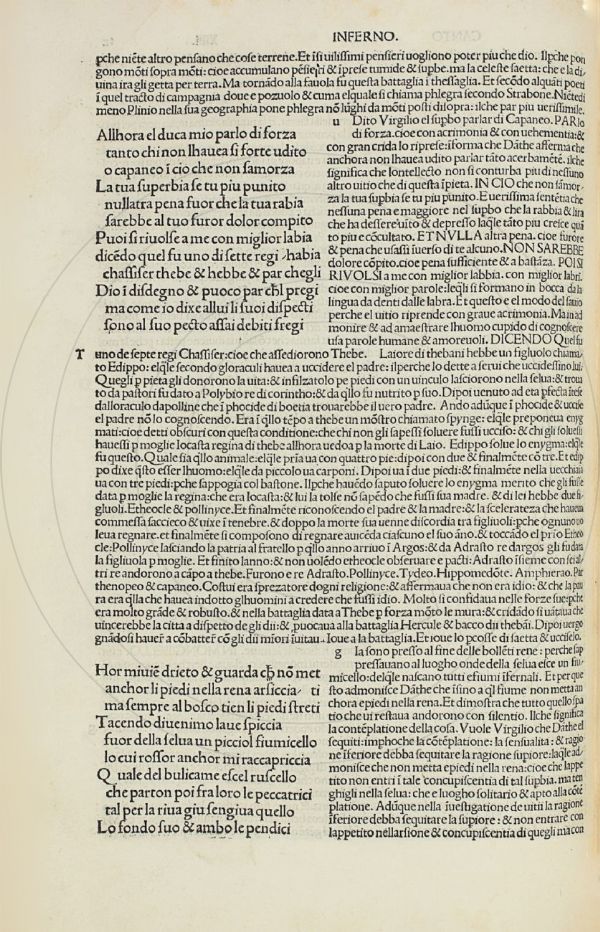 INFERNO.
pche niẽte altro pensano che cose terrene. Et ĩsi uilissimi pensieri uogliono poter piu che dio. Ilche pon
gono mõti sopra mõti: cioe accumulano pẽsieri & ĩprese tumide & supbe. ma la celeste saetta: che e la di
uina ira gli getta per terra. Ma tornãdo alla fauola fu questa battaglia ĩ thessaglia. Et secõdo alquãti poeti
ĩ quel tracto di campagnia doue e pozuolo & cuma elquale si chiama phlegra secondo Strabone. Niẽtedi
meno Plinio nella sua geographia pone phlegra nõ lũghi da mõti posti disopra: ilche par piu uerisimile.
Allhora el duca mio parlo di forza
tanto chi non lhauea si forte udito
o capaneo ĩ cio che non samorza
La tua superbia se tu piu punito
nullatra pena fuor che la tua rabia
sarebbe al tuo furor dolor compito
Puoi si riuolse a me con miglior labia
dicẽdo quel fu uno di sette regi
habia
chassiser thebe & hebbe & par chegli
Dio ĩ disdegno & puoco par chl pregi
ma come io dixe allui li suoi dispecti
sono al suo pecto assai debiti fregi
u Dito Virgilio el supbo parlar di Capaneo. PARlo
di forza. cioe con acrimonia & con uehementia: &
con gran crida lo riprese: ĩforma che Dãthe afferma che
anchora non lhauea udito parlar tãto acerbamẽte. ilche
significa che lontellecto non si conturba piu di nessuno
altro uitio che di questa ĩpieta. IN CIO che non samor
za la tua supbia se tu piu punito. Et uerissima sentẽtia che
nessuna pena e maggiore nel supbo che la rabbia & lira
che ha dessere uito & depresso laqle tãto piu cresce quã
to piu e occultato. ET NVLLA altra pena. cioe furore
& pena che usassi iuerso di te alcuno. NON SAREBBE
dolore cõpito. cioe pena sufficiente & a bastãza. POI SI
RIVOLSI a me con miglior labbia. con miglior labri.
cioe con miglior parole: leqli si formano in bocca da la
lingua da denti dalle labra. Et questo e el modo del sauio
perche el uitio riprende con graue acrimonia. Ma in ad
monire & ad amaestrare lhuomo cupido di cognoscere
usa parole humane & amoreuoli. DICENDO Quel fu
T uno de septe regi Chassiser: cioe che assediorono Thebe. Laiore di thebani hebbe un figluolo chiama
to Edippo: elqle secondo gloraculi hauea a uccidere el padre: ilperche lo dette a serui che uccidessino lui.
Quegli p pieta gli donorono la uita: & infilzatolo pe piedi con un uinculo lasciorono nella selua: & troua
to da pastori fu dato a Polybio re di corintho: & da qllo fu nutrito p suo. Dipoi uenuto ad eta pfecta ĩtese
dalloraculo dapolline che ĩ phocide di boetia trouarebbe il uero padre. Ando adũque ĩ phocide & uccise
el padre nõ lo cognoscendo. Era ĩ qllo tẽpo a thebe un mõstro chiamato spynge: elqle preponeua enyg
mati: cioe detti obscuri con questa conditione: che chi non gli sapessi soluere fussi ucciso: & chi gli soluessi
hauessi p moglie locasta regina di thebe allhora uedoa p la morte di Laio. Edippo solue lo enygma: elqle
fu questo. Quale sia qllo animale: elqle pria ua con quattro pie: dipoi con due & finalmẽte cõ tre. Et edip
po dixe qsto esser lhuomo: elqle da piccolo ua carponi. Dipoi ua ĩ due piedi: & finalmẽte nella uecchiai
ua con tre piedi: pche sappogia col bastone. Ilpche hauẽdo saputo soluere lo enygma merito che gli fusse
data p moglie la regina: che era locasta: & lui la tolse nõ sapẽdo che fussi sua madre. & di lei hebbe due fi
gluoli. Etheocle & pollinyce. Et finalmẽte riconoscendo el padre & la madre: & la sceleratezza che haueua
commessa sacciecò & uixe ĩ tenebre. & doppo la morte sua uenne discordia tra figliuoli: pche ognuno uo
leua regnare. et finalmẽte si composono di regnare auicẽda ciascuno el suo ãno. & toccãdo el prio Etheo
cle: Pollinyce lasciando la patria al fratello p qllo anno arriuo ĩ Argos: & da Adrasto re dargos gli fu data
la figliuola p moglie. Et finito lanno: & non uolẽdo etheocle obseruare e pacti: Adrasto ĩsieme con sei al
tri re andorono a cãpo a thebe. Furono e re Adrasto. Pollinyce. Tydeo. Hippomedõte. Amphierao. Par
thenopeo & capaneo. Costui era ĩsprezatore dogni religione: & affermaua che non era idio: & che la pau
ra era qlla che hauea indotto glhuomini a credere che fussi idio. Molto si confidaua nelle forze sue: pche
era molto grãde & robusto. & nella battaglia data a Thebe p forza mõto le mura: & cridãdo si uãtaua che
uincerebbe la citta a dispetto de gli dii: & puocaua alla battaglia Hercule & bacco dii thebãi. Dipoi uergo
gnãdosi hauer a cõbatter cõ gli dii mĩori ĩuitau. Ioue a la battaglia. Et ioue lo pcosse di saetta & ucciselo.
Hor miuiẽ drieto & guarda ch nõ met
ti
anchor li piedi nella rena arsiccia
ma sempre al bosco tien li piedi streti
Tacendo diuenimo laue spiccia
fuor della selua un picciol fiumicello
lo cui rossor anchor mi raccapriccia
Quale del bulicame escel ruscello
che parton poi fra loro le peccatrici
tal per la riua giu sengiua quello
Lo fondo suo & ambo le pendici
g la sono presso al fine delle bollẽti rene: perche sap
pressauano al luogho onde della selua esce un fiu
micello: delqle nascano tutti efiumi ĩfernali. Et per que
sto admonisce Dãthe che ĩsino a ql fiume non metta an
chora epiedi nella rena. Et dimostra che tutto quello spa
tio che ui restaua andorono con silentio. Ilche significa
la contẽplatione della cosa. Vuole Virgilio che Dãthe el
sequiti: imphoche la cõtẽplatione: la sensualita: & ragio
ne ĩferiore debba sequitare la ragione supiore: laqle ad
monisce che non metta epiedi nella rena: cioe che lappe
tito non entri ĩ tale concupiscentia di tal supbia. ma ten
ghili nella selua: che e luogho solitario & apto alla cõtẽ
platione. Adũque nella ĩuestigatione de uitii la ragione
ĩferiore debba sequitare la supiore: & non entrare con
lappetito nellarsione & concupiscentia di quegli ma con